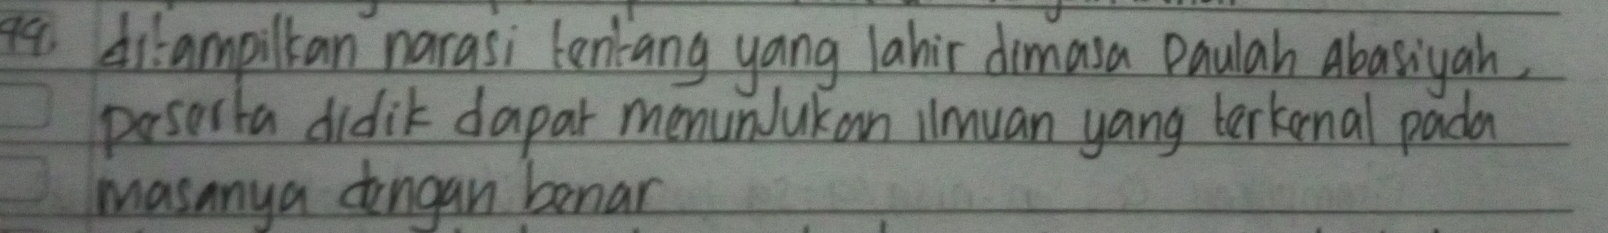 44. ditampilkan narasi tentang yang lahir dimasa Daulah Abasiyah,
peserta didik dapat menunjukan ilmuan yang terkenal pada
masanya dengan benar